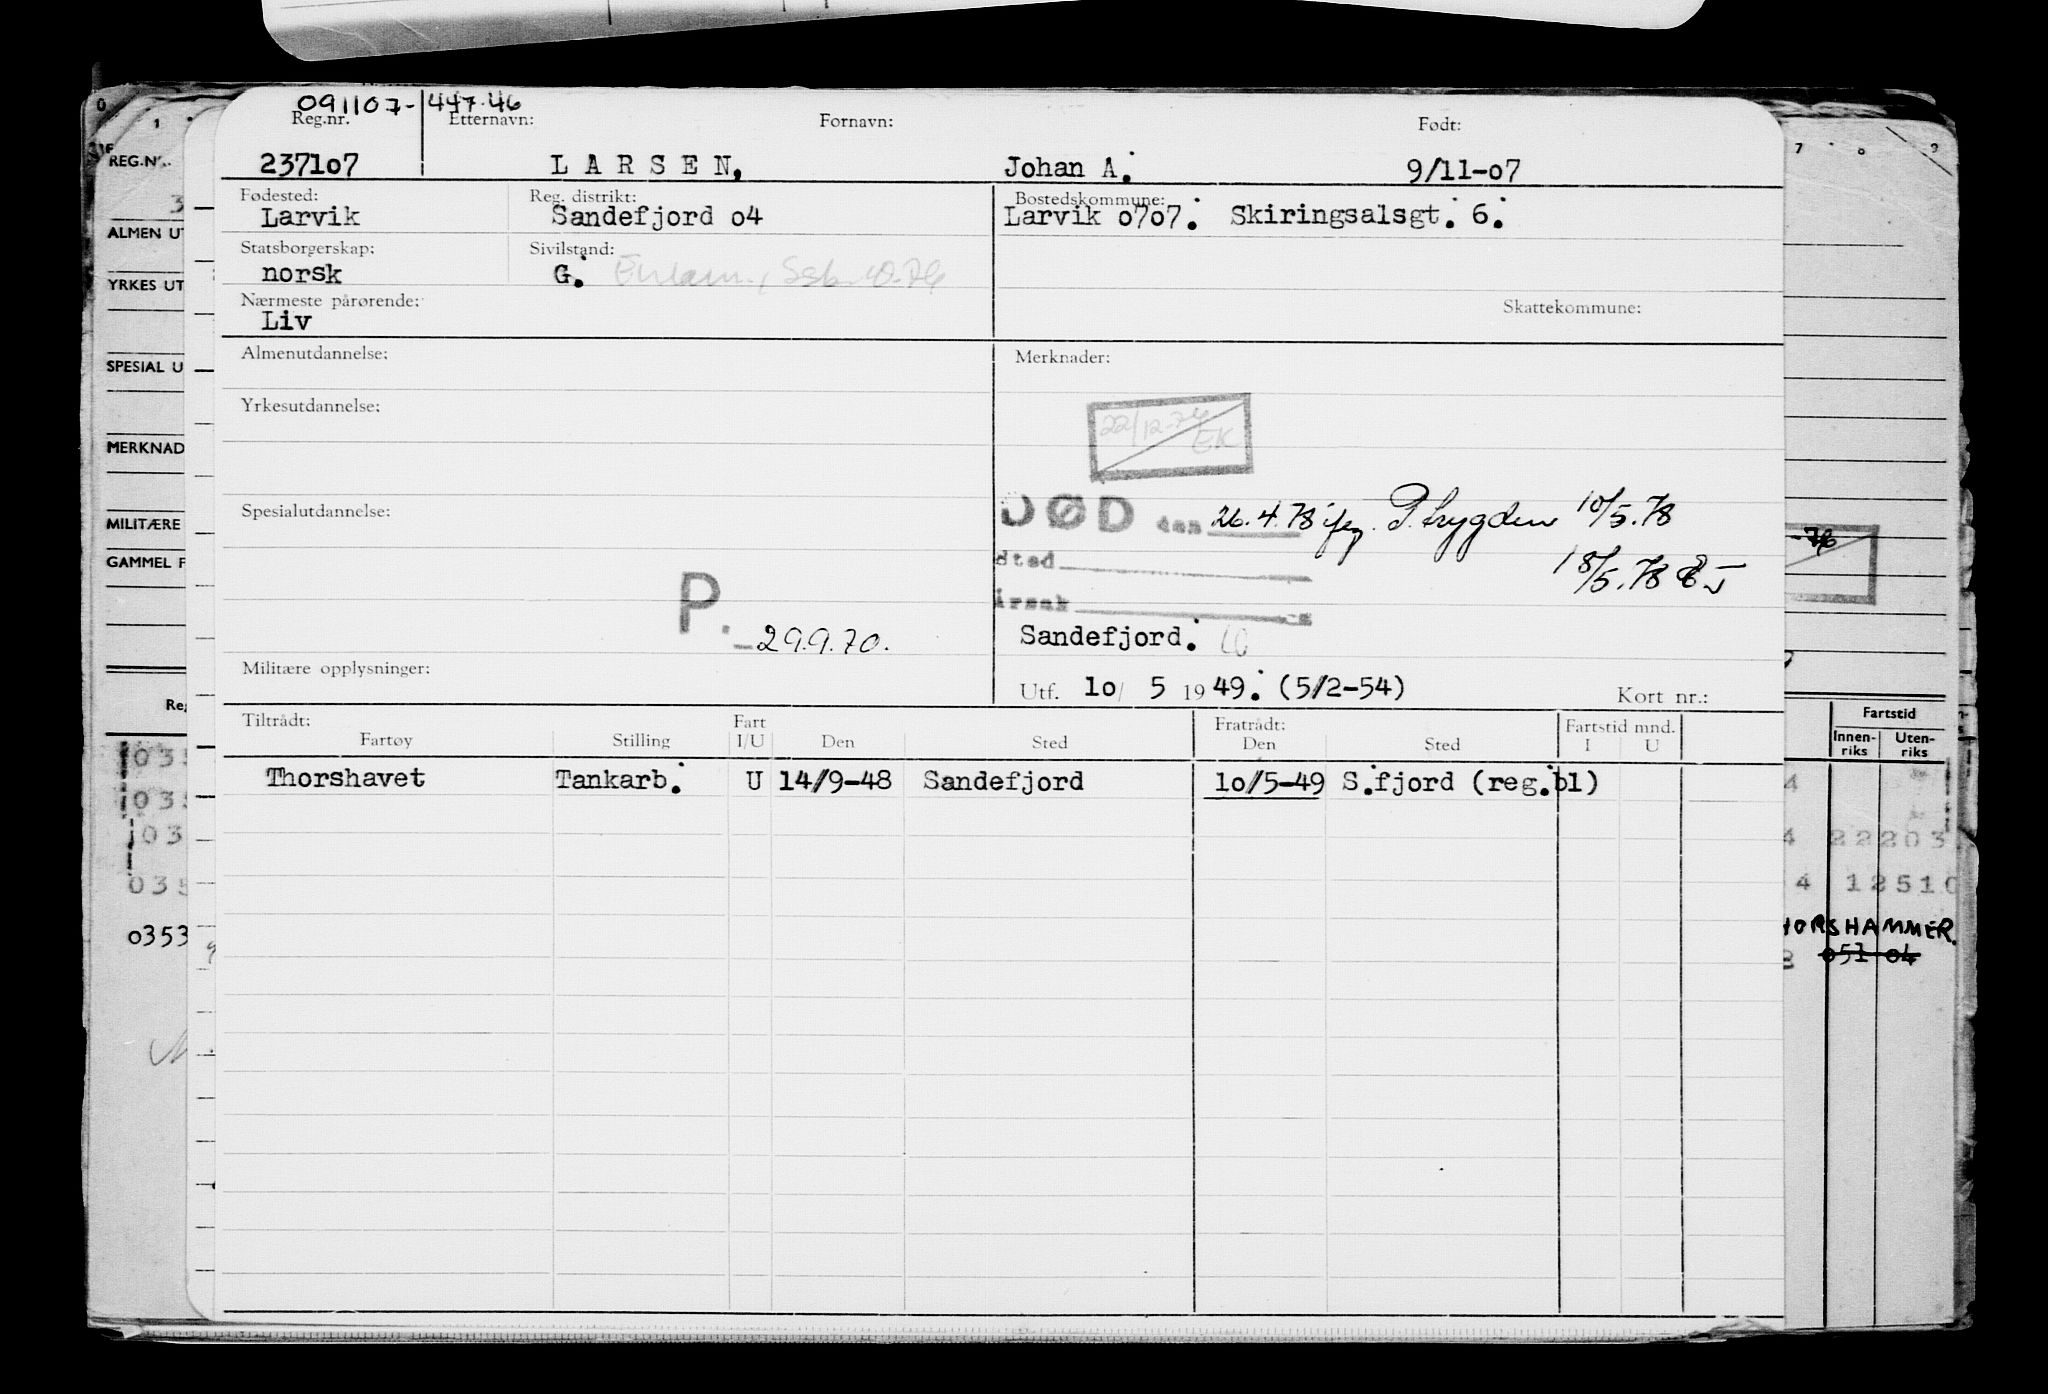 091107-447.46
Reg.nr. Etternavn: Fornavn: Født:
237107 LARSEN, Johan A. 9/11-07
Fødested: Reg. distrikt: Bostedskommune:
Larvik Sandefjord o4 Larvik o7o7. Skiringsalsgt. 6.
Statsborgerskap: Sivilstand:
norsk G.
Nærmeste pårørende: Skattekommune:
Liv
Almenutdannelse: Merknader:
Yrkesutdannelse:
22/12-76 EK
Spesialutdannelse:
DØD den 26.4.78 ifg. P.trygden 10/5.78
Sted
18/5.78
Årsak
P. 29.9.70.
Sandefjord.
Militære opplysninger:
Utf. 1o/ 5 1949. (5/2-54) Kort nr.:
Tiltrådt: Fart Fratrådt: Fartstid mnd.
Fartøy Stilling I/U Den Sted Den Sted I U
Thorshavet Tankarb. U 14/9-48 Sandefjord 1o/5-49 S.fjord (reg.bl)
REG.NR.
ALMEN UT
YRKES UT
SPESIAL U
MERKNAD
MILITÆRE
GAMMEL F
Reg
035
035
03
035
0353
-76
Fartstid
Innen-riks Uten-riks
4
4 22203
4 12510
HORSHAMMER.
051 04